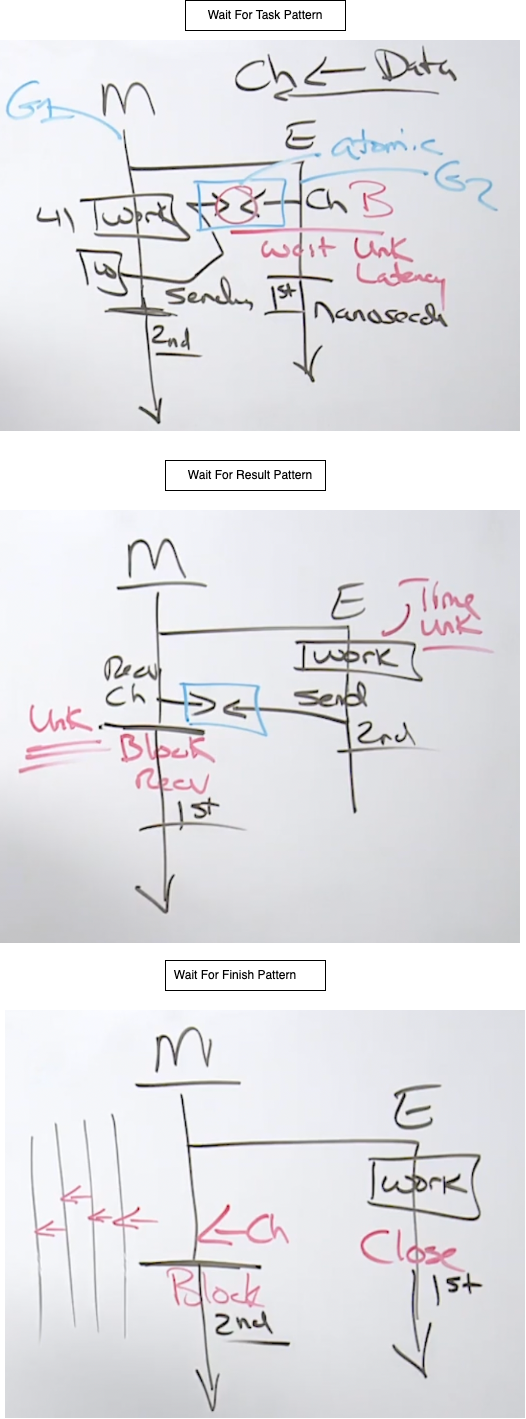 Wait For Task Pattern
Ch ← Data
M
G1
E
atomic
G2
41
Work
Ch B
Wait Unk
Latency
W
Sending
1st
Nanoseconds
2nd
Wait For Result Pattern
M
E
Time
Unk
Work
Recv
Ch
Send
Unk
2nd
Block
Recv
1st
Wait For Finish Pattern
M
E
Work
←Ch
Close
Block
1st
2nd